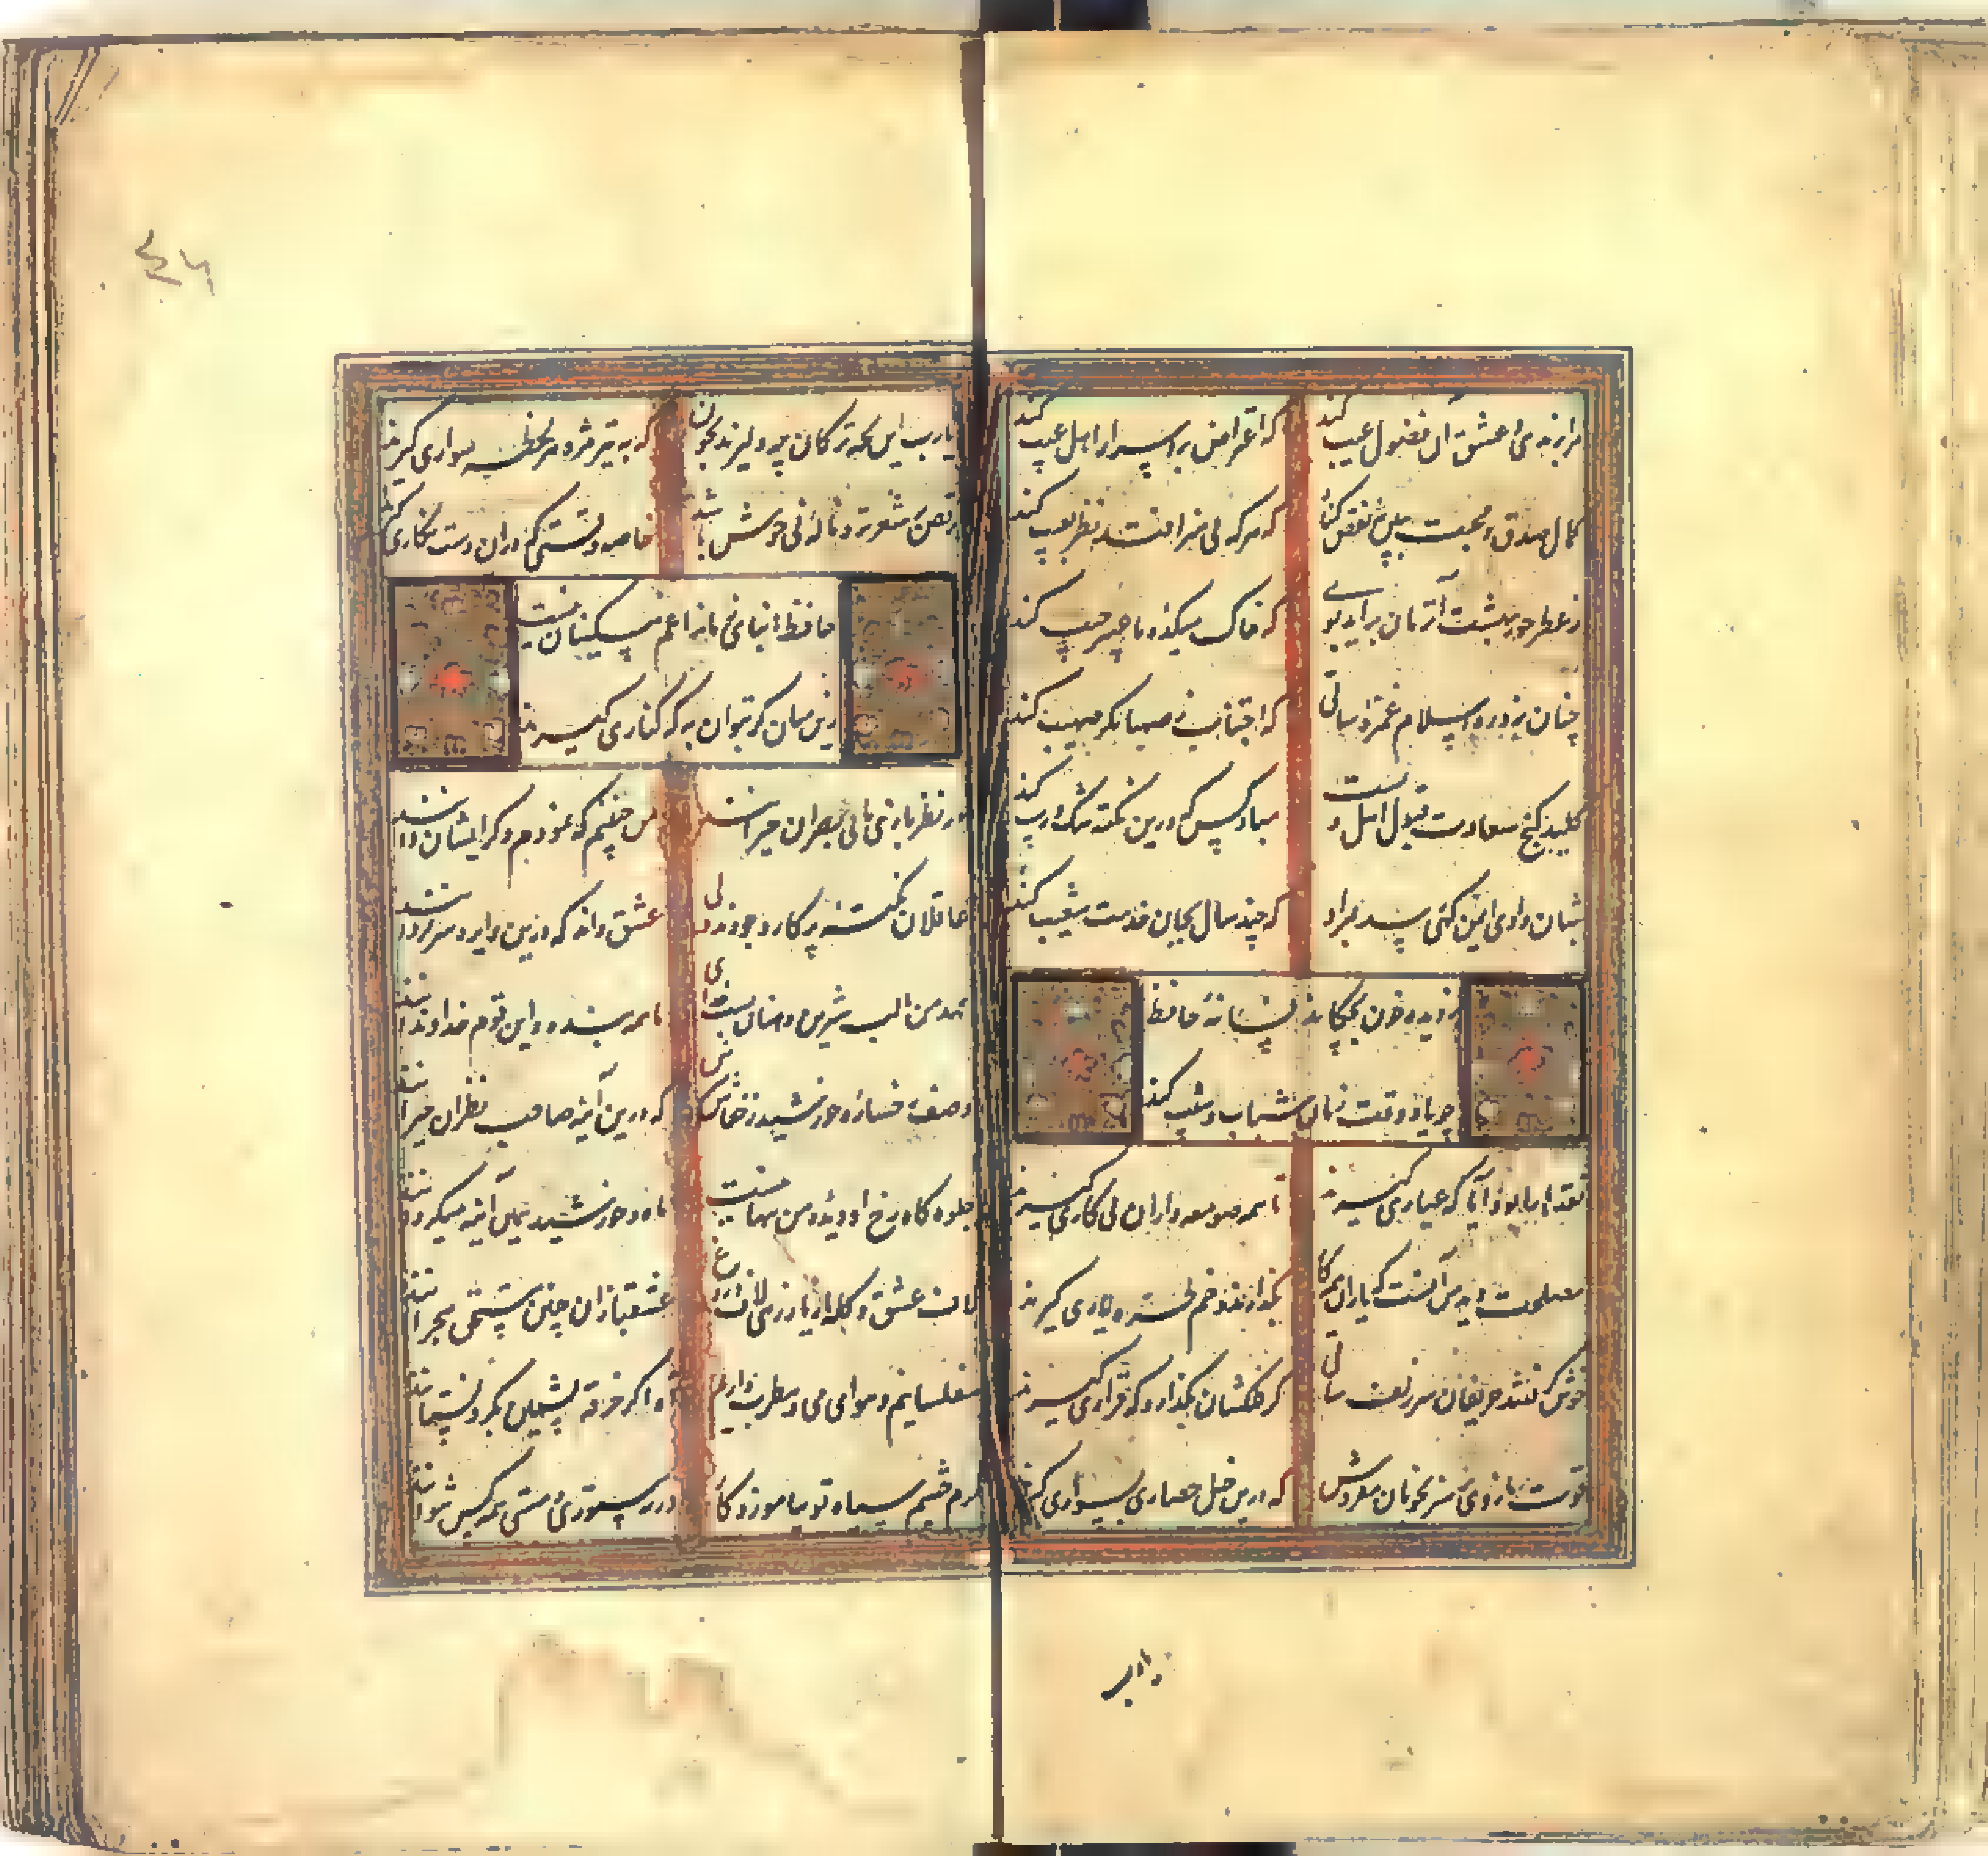 مرا برندی و عشق آن فضول عیب کند
که اعتراض بر اسرار اهل عیب کند
کمال صدق و محبت ببین نه نقص کناه
که هرکه بی هنر افتد نظر بعیب کند
ز عطر حور بهشت آن زمان برآید بوی
که خاک میکده ما عبیر جیب کند
چنان بزد ره اسلام غمزه ساقی
که اجتناب ز صهبا مکر صهیب کند
کلید کنج سعادت قبول اهل دلست
مباد کس که درین نکته شک و ریب کند
شبان وادی ایمن کهی رسد بمراد
که چند سال بجان خدمت شعیب کند
ز دیده خون بچکاند فسانه حافظ
چو یاد وقت زمان شباب و شیب کند
نقدها را بود آیا که عیاری کیرند
تا همه صومعه داران پی کاری کیرند
مصلحت دید من آنست که یاران همه کار
بکذارند و خم طره یاری کیرند
خوش کرفتند حریفان سر زلف ساقی
کر فلکشان بکذارد که قراری کیرند
قوت بازوی پرهیز بخوبان مفروش
که درین خیل حصاری بسواری کیرند
یارب
یارب این بچه ترکان چه دلیرند بخون
که به تیر مژه هر لحظه سواری کیرند
رقص بر شعر تر و ناله نی خوش باشد
خاصه رقصی که در آن دست نکاری کیرند
حافظ ابنای زمان را غم مسکینان نیست
زین میان کر بتوان به که کناری کیرند
در نظربازی ما بی بصران حیرانند
من چنینم که نمودم دکر ایشان دانند
عاقلان نقطه پرکار وجودند ولی
عشق داند که درین دایره سرکردانند
عهد من با لب شیرین دهنان بست خدای
ما همه بنده و این قوم خداوندانند
وصف رخساره خورشید ز خفاش مپرس
که درین آینه صاحب نظران حیرانند
جلوه کاه رخ او دیده من تنها نیست
ماه و خورشید همین آینه میکردانند
لاف عشق و کله از یار زهی لاف دروغ
عشقبازان چنین مستحق هجرانند
مفلسانیم و هوای می و مطرب داریم
آه اکر خرقه پشمین بکرو نستانند
مکرم چشم سیاه تو بیاموزد کار
ورنه مستوری و مستی همه کس نتوانند